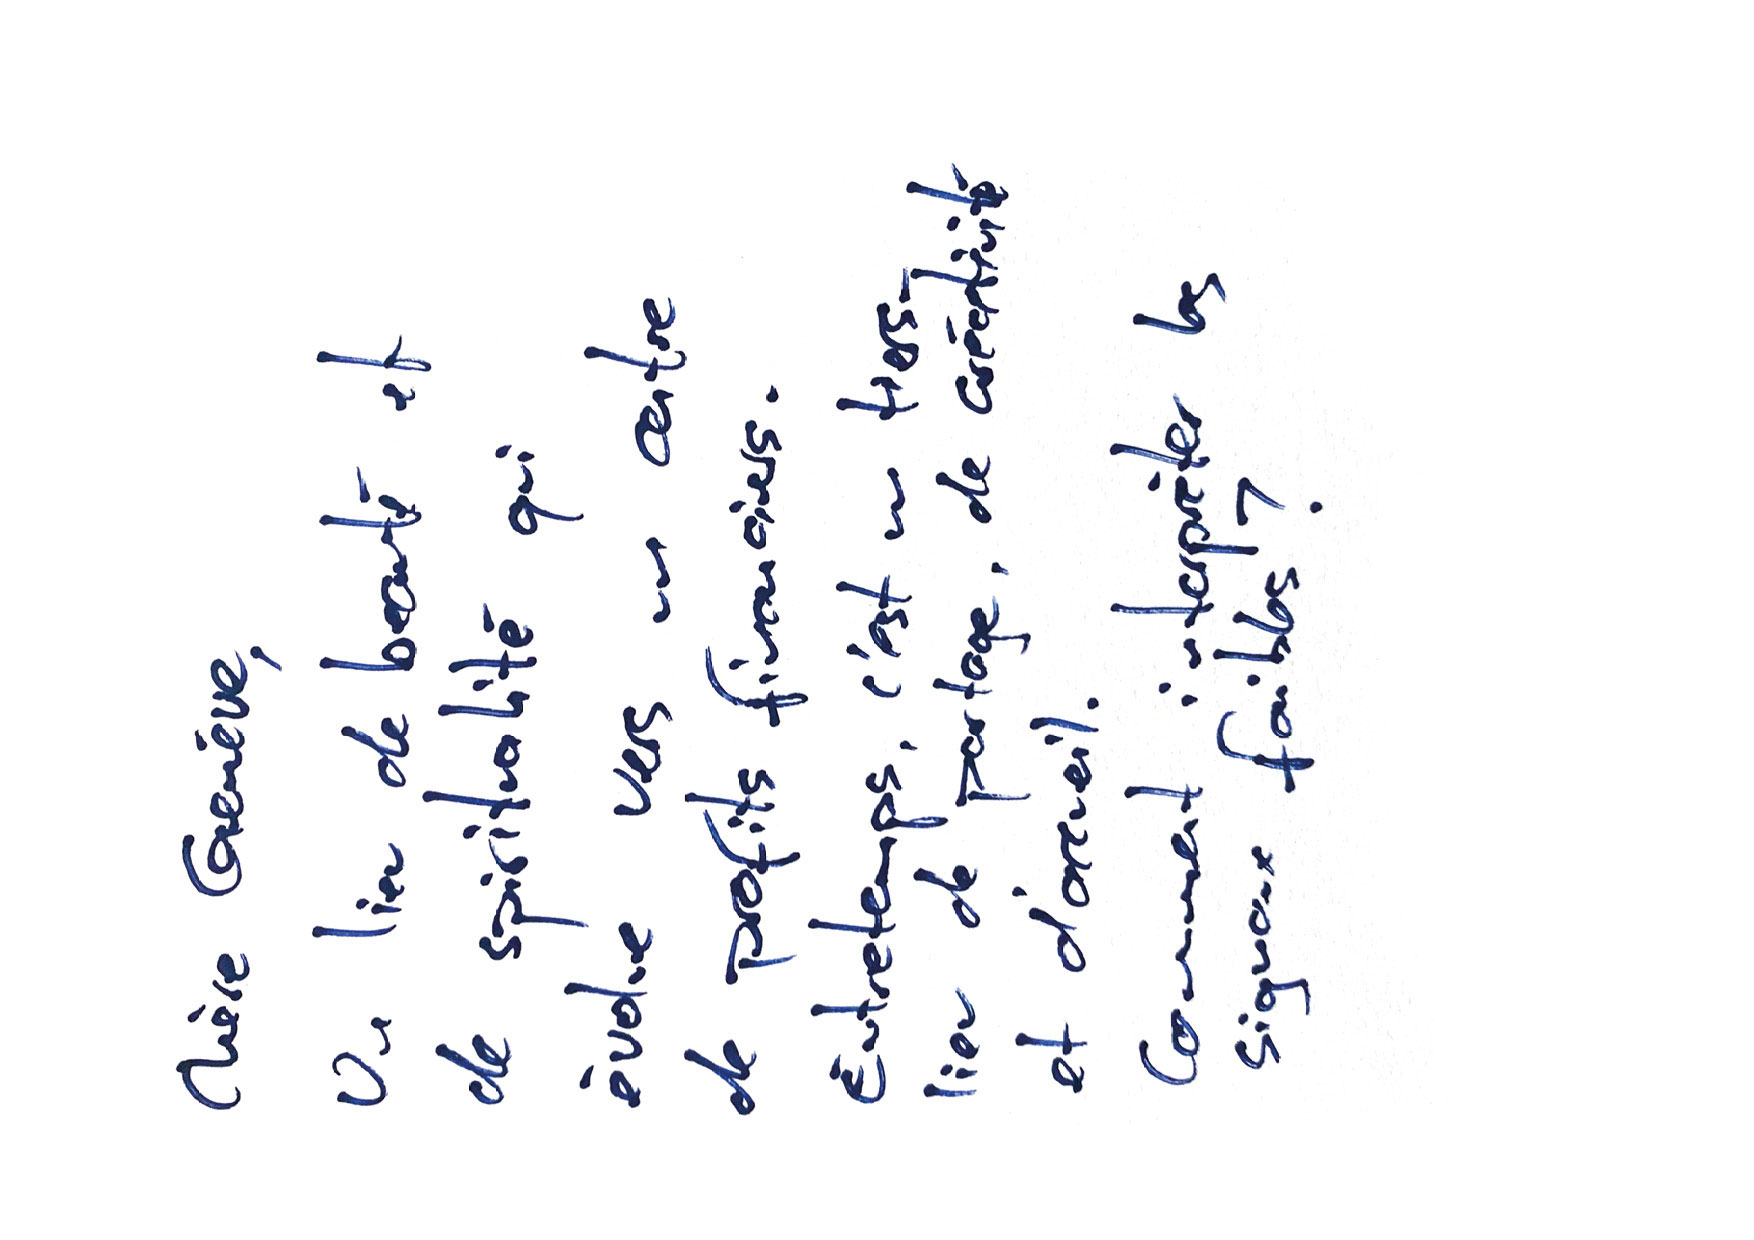 Chère Geneviève,
Un lieu de beauté et
de spiritualité qui
évolue vers un centre
de profits financiers.
Entretemps, c'est un tiers-
lieu de partage, de créativité
et d'accueil.
Comment interpréter les
signaux faibles ?